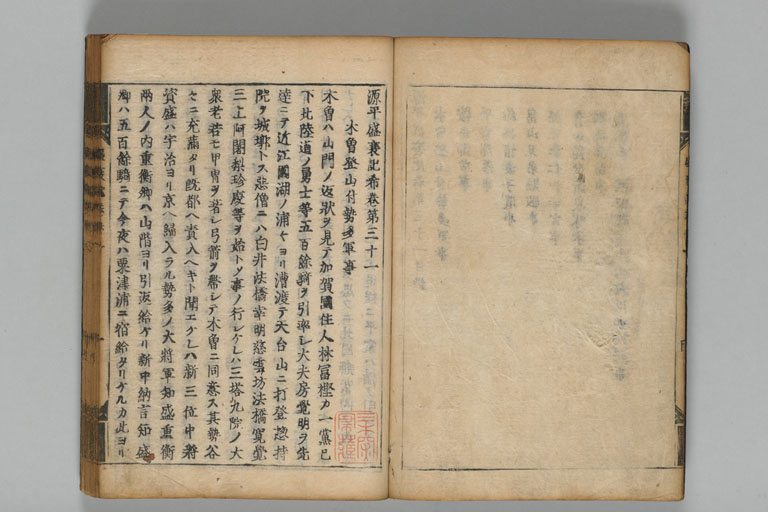 源平盛衰記希卷第三十一
木曽登山付勢多軍事
木曽ハ山門ノ返狀ヲ見テ加賀國住人林冨樫カ一黨已
下北陸道ノ勇士等五百餘騎ヲ引率シ大夫房覺明ヲ先
達ニテ近江國湖ノ浦々ヨリ漕渡テ天台山ニ打登惣持
院ヲ城墎トス悪僧ニハ白井法橋幸明慈雲坊法橋寛覺
三上阿闍梨珍慶等ヲ始トメ事ノ行シケレハ三塔九院ノ大
衆老若モ甲冑ヲ著シ弓箭ヲ帶シテ木曽ニ同意ス其勢谷
々ニ充滿タリ既都ヘ責入ヘキト聞エケレハ新三位中將
資盛ハ宇治ヨリ京ヘ歸入ラル勢多ノ大將軍知盛重衡
兩人ノ内重衡卿ハ山階ヨリ引返給ケリ新中納言知盛
卿ハ五百餘騎ニテ今夜ハ粟津浦ニ宿給タリケルカ此ヨリ